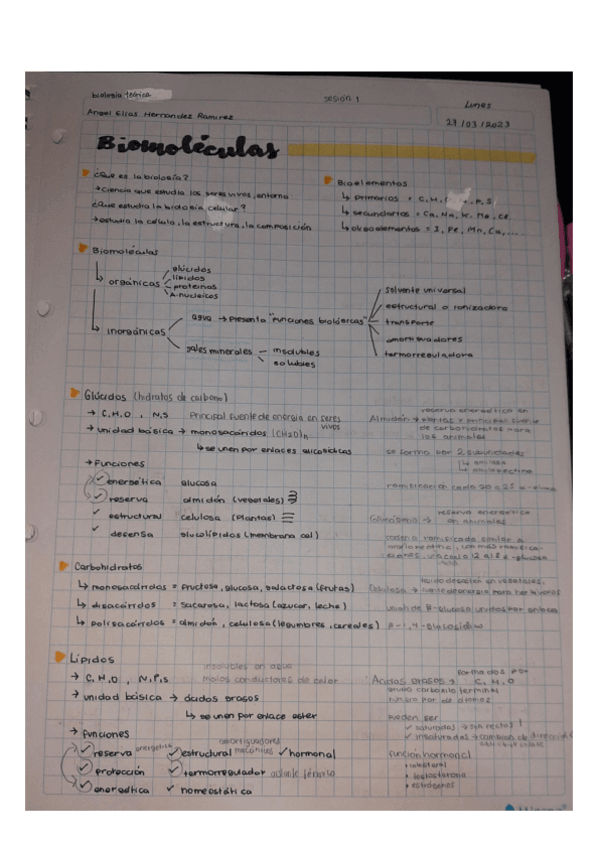 biología teórica
sesión 1
Lunes
27/03/2023
Angel Elias Hernandez Ramirez
Biomoléculas
¿Que es la biología?
→ Ciencia que estudia los seres vivos, entorno
¿Que estudia la biología celular?
→ estudia la célula, la estructura, la composición
Bioelementos
↳ primarios = C, H, P, S
↳ secundarios = Ca, Na, K, Mg, Cl
↳ oligoelementos = I, Fe, Mn, Cu, ....
Biomoléculas
↳ orgánicas
glúcidos
lípidos
proteínas
A. nucleicos
↳ inorgánicas
agua → presenta "funciones biológicas"
solvente universal
estructural o ionizadora
transporte
amortiguadores
termorreguladora
sales minerales
insolubles
solubles
Glúcidos (hidratos de carbono)
→ C, H, O , N, S Principal fuente de energia en seres vivos
→ unidad básica → monosacáridos (CH2O)n
↳ se unen por enlaces glucosídicos
→ Funciones
✓ energética glucosa
✓ reserva almidón (vegetales)
✓ estructural celulosa (plantas)
✓ defensa glucolípidos (membrana cel)
Almidón → reserva energética en plantas y principal fuente de carbohidratos para los animales
se forma por 2 subunidades
↳ amilosa
↳ amilopectina
ramificación cada 20 a 25
→ reserva energética en animales
cadena ramificada similar a
Carbohidratos
↳ monosacáridos = fructosa, glucosa, galactosa (frutas)
↳ disacáridos = sacarosa, lactosa (azucar, leche)
↳ polisacáridos = almidón, celulosa (legumbres, cereales)
Celulosa →
unión de B-glucosa unidos por enlace
β-1,4-glucosídico
Lípidos
insolubles en agua
→ C, H, O , N, P, S malos conductores de calor
→ unidad básica → ácidos grasos
↳ se unen por enlace ester
→ funciones
✓ reserva energética
✓ protección
✓ energética
✓ estructural
amortiguadores mecánicos
✓ termorregulador aislante térmico
✓ homeostática
✓ hormonal
Ácidos grasos → formados por C, H, O
grupo carboxilo terminal
numero par de átomos
pueden ser
✓ saturadas → son rectos
✓ insaturadas → cambian de
función hormonal
• testosterona
• estrógenos